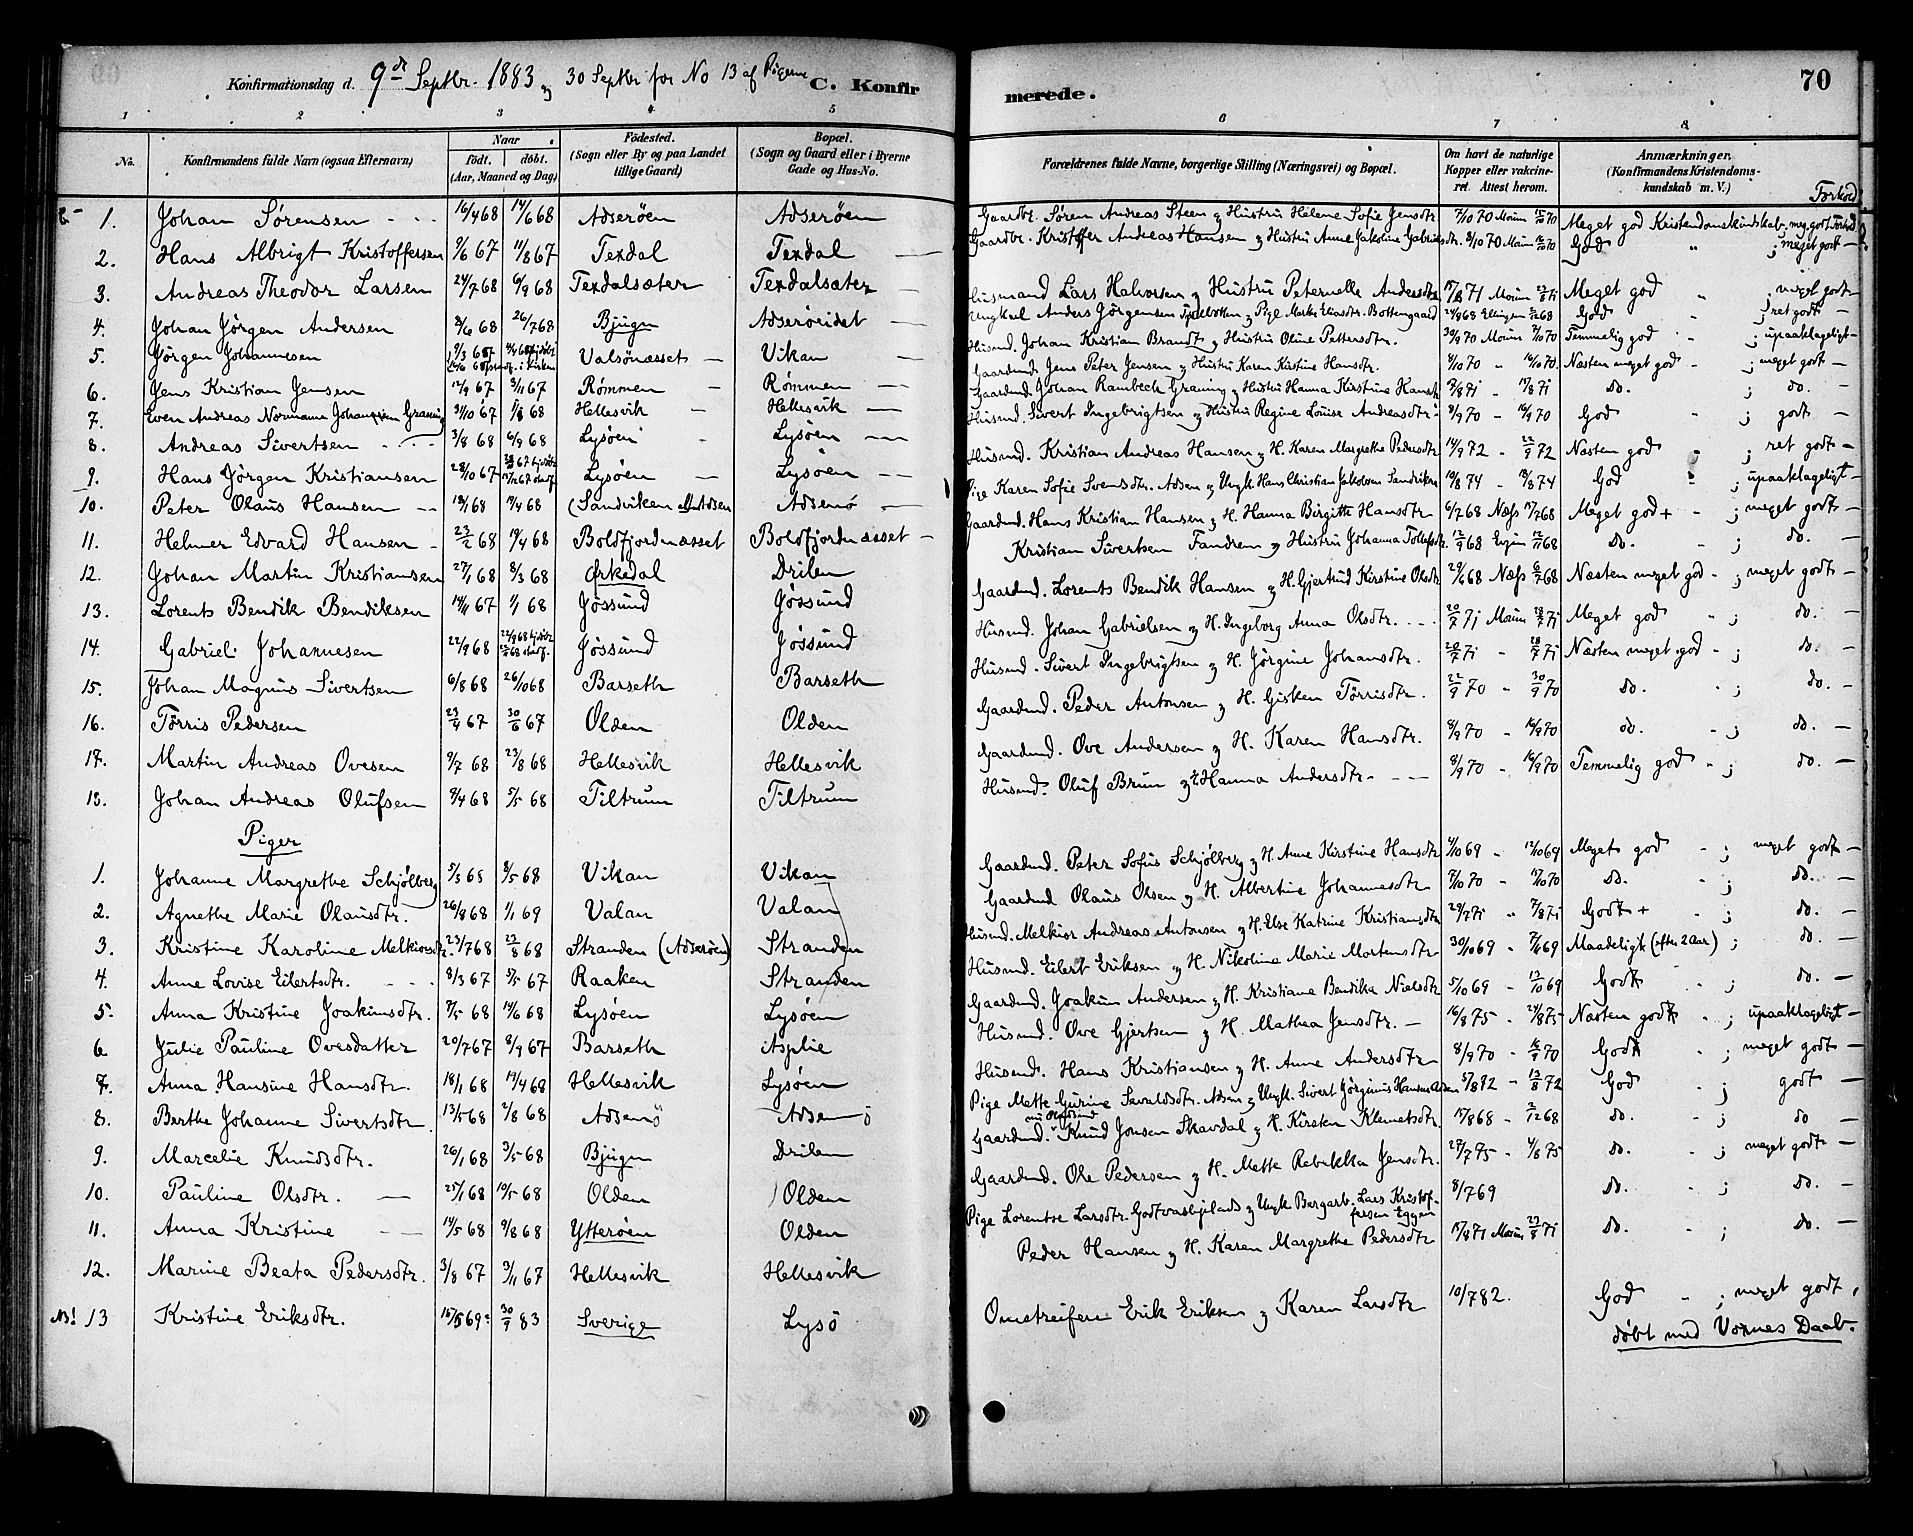 Konfirmationsdag d. 9de Septbr. 1883 og 30 Septbr for No 13 af Pigerne C. Konfir
merede. 70
1 2 3 4 5
6 7 8
No. Konfirmandens fulde Navn (ogsaa Efternavn) Naar født. døbt. (Aar, Maaned og Dag) Fødested. (Sogn eller By og paa Landet tillige Gaard) Bopæl. (Sogn og Gaard eller i Byerne Gade og Hus-No.
Forældrenes fulde Navne, borgerlige Stilling (Næringsvei) og Bopæl. Om havt de naturlige Kopper eller vakcineret. Attest herom. Anmærkninger. (Konfirmandens Kristendomskundskab m. V.) Forhold
1. Johan Sørensen 16/4 68 14/6 68 Adserøen Adserøen
2. Hans Albrigt Kristoffersen 9/6 67 11/8 67 Texdal Texdal
3. Andreas Theodor Larsen 24/7 68 6/9 68 Texdalsæter Texdalsæter
4. Johan Jörgen Andersen 8/6 68 26/7 68 Bjugn Adserøeidet
5. Jörgen Johannesen Valsönæsset Vikan
6. Jens Kristian Jensen 12/9 67 3/11 67 Römmen Römmen
7. Even Andreas Normann Graning 31/10 67 1/8 68 Hellesvik Hellesvik
8. Andreas Sivertsen 3/8 68 6/9 68 Lysøen Lysøen
9. Hans Jörgen Kristiansen 28/10 67 Lysøen Lysøen
10. Peter Olaus Hansen 18/1 68 19/4 68 (Sandviken Adsenö
11. Helmer Edvard Hansen 23/2 68 19/4 68 Boldfjordnæsset Boldfjordnæsset
12. Johan Martin Kristiansen 27/1 68 8/3 68 Ørkedal Drilen
13. Lorents Bendik Bendiksen 14/11 67 1/1 68 Jössund Jössund
14. Gabriel Johannesen 22/9 68 Jössund Jössund
15. Johan Magnus Sivertsen 6/8 68 26/10 68 Barseth Barseth
16. Törris Pedersen 23/4 67 30/6 67 Olden Olden
17. Martin Andreas Ovesen 9/7 68 23/8 68 Hellesvik Hellesvik
18. Johan Andreas Olufsen 8/4 68 5/5 68 Tiltrum Tiltrum
Piger
1. Johanne Margrethe Schjölberg 5/3 68 8/5 68 Vikan Vikan
2. Agnethe Marie Olausdtr. 26/8 68 1/1 69 Valan Valan
3. Kristine Karoline Melkiorsdtr. 23/7 68 23/8 68 Stranden (Adserøen) Stranden
4. Anne Lovise Eilertsdtr. 8/3 67 5/5 67 Raaken Stranden
5. Anna Kristine Joakimsdtr. 8/5 68 14/6 68 Lysøen Lysøen
6. Julie Pauline Ovesdatter 20/7 67 8/9 67 Barseth Asplie
7. Anna Hansine Hansdtr. 18/1 68 19/4 68 Hellesvik Lysøen
8. Berthe Johanne Sivertsdtr. 13/5 68 2/8 68 Adsenö Adsenö
9. Marcelie Knudsdtr. 26/1 68 3/5 68 Bjugn Drilen
10. Pauline Olsdtr. 25/1 68 10/5 68 Olden Olden
11. Anna Kristine 14/5 68 9/8 68 Ytterøen Olden
12. Marine Beata Pedersdtr. 3/8 67 3/11 67 Hellesvik Hellesvik
NB! 13 Kristine Eriksdtr. 15/5 69 30/9 83 Sverige Lysö
Gaardbr. Søren Andreas Steen og Hustru Helene Sofie Jensdtr 7/10 70 Moum 15/10 70 Meget god Kristendomskundskab; meg. godt Forhold
Gaardbr. Kristoffer Andreas Hansen og Hustru Anne Jakoline Gabrielsdtr. 8/10 70 Moum 16/10 70 God " ; meget godt
Husmand Lars Halvorsen og Hustru Peternelle Andersdtr 15/8 71 Moum 23/8 71 Meget god " meget godt
Ungkarl Anders Jörgensen og Pige Marte Eliasdtr. Bottengaard 24/9 68 Ellingsen God " ; ret godt
Husmd. Johan Kristian Brandt og Hustru Oline Pettersdtr. 30/9 70 Moum 7/10 70 Temmelig god ; upaaklageligt
Gaardmd. Jens Peter Jensen og Hustru Karen Kistine Hansdtr. 8/10 70 " 16/10 70. Næsten meget god ; meget godt
Gaardmd. Johan Rambech Graning og Hustru Hanna Kirstine Hansdtr 9/8 71 " 17/8 71 do. ; do.
Husmd. Sivert Ingebrigtsen og Hustru Regine Louise Andreasdtr. 8/9 70 " 16/9 70 God " ; godt
Husmd. Kristian Andreas Hansen og H. Karen Margrethe Pedersdtr 14/9 72 " 22/9 72 Næsten god ; ret godt
Pige Karen Sofie Svensdtr. Adsen og Ungk. Hans Christian Jakobsen Sandviken 10/8 74 " 18/8 74 God " ; upaaklageligt
Gaardmd. Hans Kristian Hansen og H. Hanna Birgitte Hansdtr 6/7 68 Næss 17/7 68 Meget god + ; meget godt
Kristian Sivertsen Fandrem og Hustru Johanna Tollefsdtr. 12/9 68 12/11 68 do. ; do.
Gaardmd. Lorents Bendik Hansen og H. Gjertrud Kirstine Olsdtr 29/6 68 Næss 6/7 68 Næsten meget god ; meget godt
Husmd. Johan Gabrielsen og H. Ingeborg Anna Olsdtr. 20/7 71 Moum 28/7 71 Meget god " ; do.
Husmd. Sivert Ingebrigtsen og H. Jörgine Johansdtr. 20/7 71 " 28/7 71 Næsten meget god ; do.
Gaardmd. Peder Antonsen og H. Gisken Törrisdtr. 22/9 70 " 30/9 70 do. " ; do.
Gaardmd. Ove Andersen og H. Karen Hansdtr. 8/9 70 " 16/9 70 do. " ; do.
Husmd. Oluf Brun og H. Hanna Andersdtr. 8/9 70 " 16/9 70 Temmelig god ; do.
Gaardmd. Peter Sofus Schjölberg og H. Anne Kirstine Hansdtr 4/10 69 " 12/10 69 Meget god ; meget godt
Gaardmd Olaus Olsen og H. Albertine Johannesdtr 7/10 70 " 17/10 70 do. " ; do.
Husmd. Melkior Andreas Antonsen og H. Else Katrine Kristiansdtr 29/7 71 " 7/8 71 Godt + ; do.
Husmd. Eilert Eriksen og H. Nikoline Marie Mortensdtr 30/10 69 " 7/11 69 Maadeligt (efter 2 Aar) ; do.
Gaardmd. Joakim Andersen og H. Kristiane Bendikta Nielsdtr 5/10 69 " 13/10 69 Godt ; do.
Husmd. Ove Gjertsen og H. Mathea Jensdtr. 16/8 75 " 24/8 75 Næsten godt ; upaaklageligt
Husmd. Hans Kristiansen og H. Anne Andersdtr 8/9 70 " 16/9 70 Godt ; meget godt
Pige Mette Gurine Sevaldsdtr. Adsen og Ungk. Sivert Jörginus Hansen Adsen 5/8 72 " 13/8 72 God ; godt
Gaardmd. Knud Jonsen Skavdal og H. Kirsten Klemetsdtr 15/8 68 " 2/12 68 do. ; do
Gaardmd. Ole Pedersen og H. Mette Rebekka Jensdtr. 27/7 75 " 4/8 75 do. ; meget godt
Pige Lorentse Larsdtr. Godtvasliplads og Ungk Bergarb. Lars Kristoffersen Eggen 8/7 69 do. ; do.
Peder Hansen og H. Karen Margrethe Pedersdtr 15/8 71 Moum 23/8 71 do. ; do.
Omstreiferne Erik Eriksen og Karen Larsdtr 10/7 82. God ; meget godt,
döbt med Voxnes Daab.